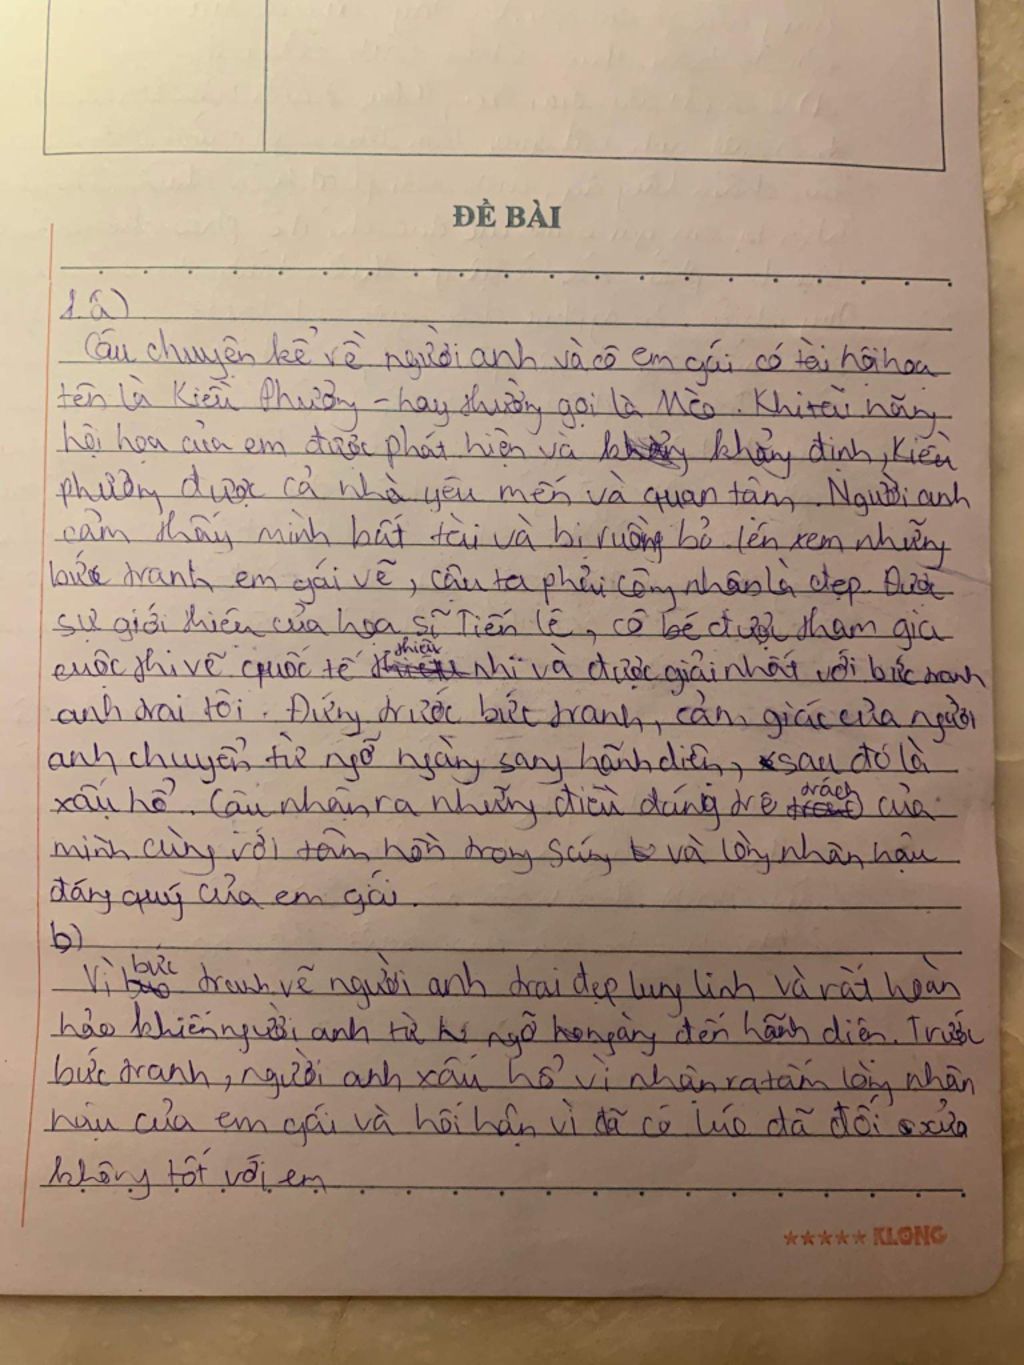 ĐỀ BÀI
1.a)
Câu chuyện kể về người anh và cô em gái có tài hội họa
tên là Kiều Phương - hay thường gọi là Mèo. Khi tài năng
hội họa của em được phát hiện và khẳng định, Kiều
phương được cả nhà yêu mến và quan tâm. Người anh
cảm thấy mình bất tài và bị ruồng bỏ. lén xem những
bức tranh em gái vẽ, cậu ta phải công nhận là đẹp. Được
sự giới thiệu của họa sĩ Tiến lê, cô bé được tham gia
cuộc thi vẽ quốc tế thiếu nhi và được giải nhất với bức tranh
anh trai tôi. Đứng trước bức tranh, cảm giác của người
anh chuyển từ ngỡ ngàng sang hãnh diện, sau đó là
xấu hổ. Cậu nhận ra những điều đáng trê trách của
mình cùng với tâm hồn trong sáng và lòng nhân hậu
đáng quý của em gái.
b)
Vì bức tranh vẽ người anh trai đẹp lung linh và rất hoàn
hảo khiến người anh từ ngỡ ngàng đến hãnh diện. Trước
bức tranh, người anh xấu hổ vì nhận ra tấm lòng nhân
hậu của em gái và hối hận vì đã có lúc đã đối xửa
không tốt với em
★★★★★ KLONG